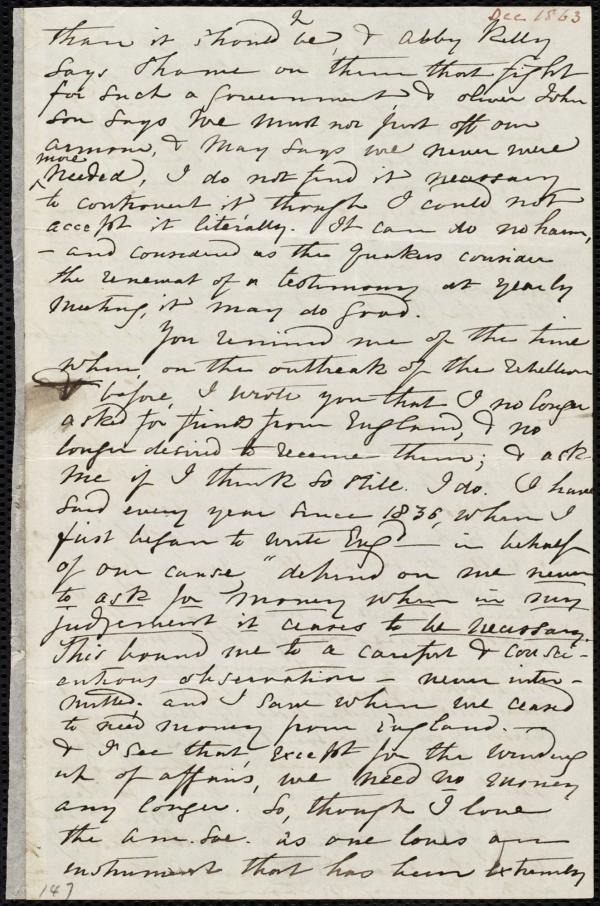 2
Dec 1863
than it should be, & Abby Kelly
says Shame on them that fight
for such a government & oliver John
son says We must not put off our
armour, & May says we never were
more
needed, I do not find it necessary
to controvert it though I could not
accept it literally. It can do no harm,
- and considered as the Quakers consider
the renewal of a testimony at yearly
meeting, it may do good.
You remind me of the time
when, on the outbreak of the rebellion
& before, I wrote you that I no longer
asked for funds from England, & no
longer desired to receive them; & ask
me if I think so still. I do. I have
said every year since 1836, when I
first began to write Engd - in behalf
of our cause, "depend on me never
to ask for money when in my
judgement it ceases to be necessary.
This bound me to a careful & consci-
entious observation - never inter-
mitted. and I saw when we ceased
to need money from England. -
& I see that, except for the winding
up of affairs, we need no money
any longer. So, though I love
the Am. Soc. as one loves an
instrument that has been extremely
147